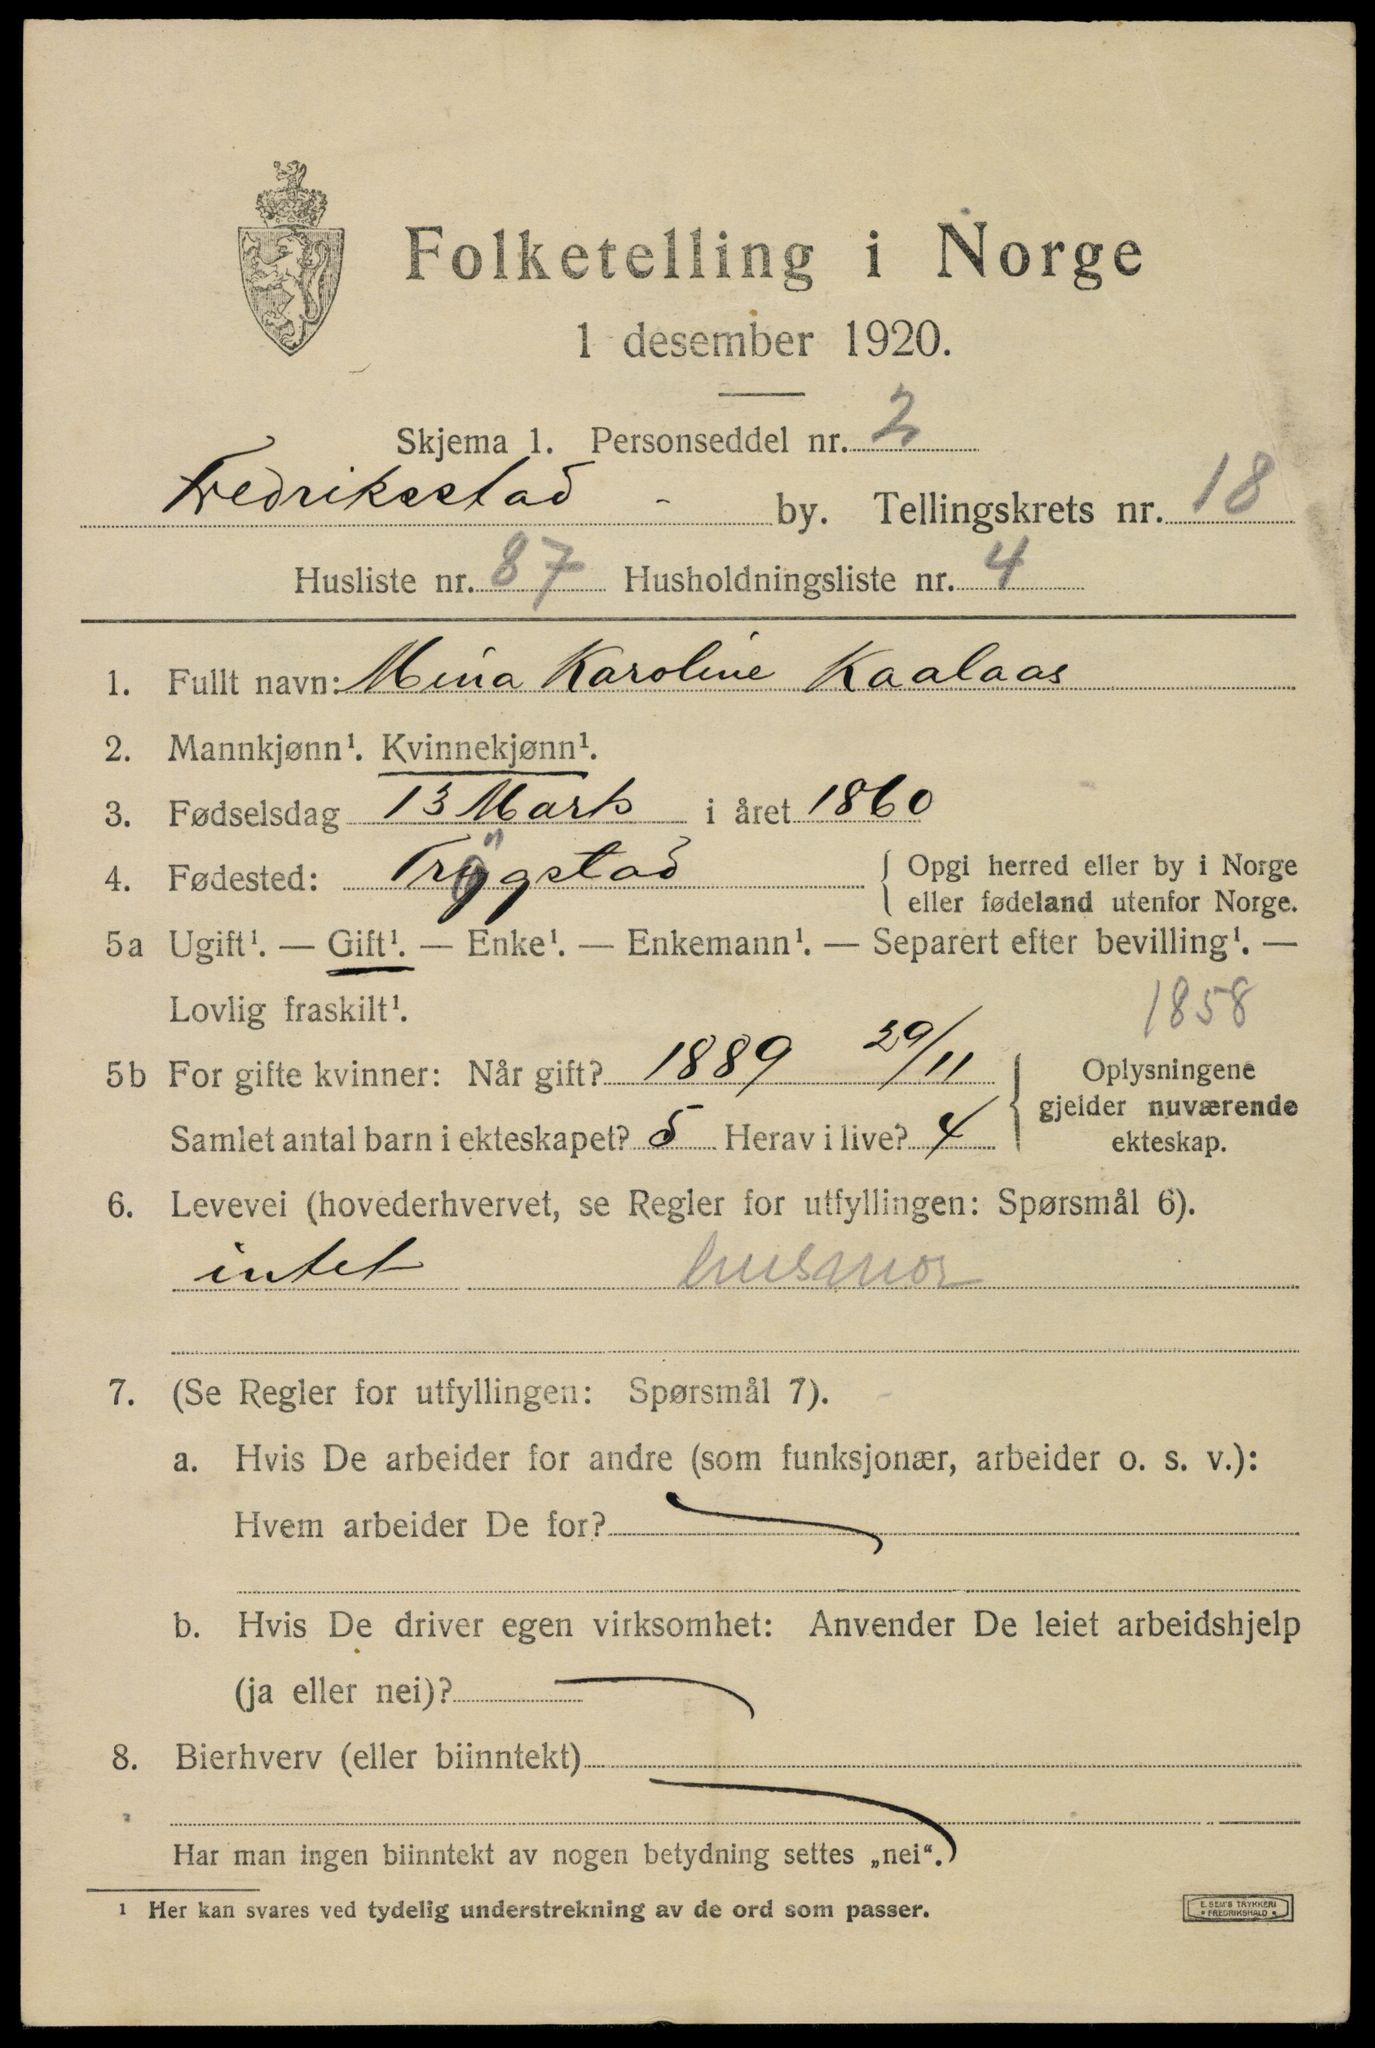 Folketelling i Norge
1 desember 1920.
Skjema 1. Personseddel nr. 2
Fredriksstad by. Tellingskrets nr. 18
Husliste nr. 87 Husholdningsliste nr. 4
1. Fullt navn: Mina Karoline Kaalaas
2. Mannkjønn¹. Kvinnekjønn¹.
3. Fødselsdag 13 Marts i året 1860
4. Fødested: Trøgstad { Opgi herred eller by i Norge
eller fødeland utenfor Norge.
5a Ugift¹. — Gift¹. — Enke¹. — Enkemann¹. — Separert efter bevilling¹. —
Lovlig fraskilt¹. 1858
5b For gifte kvinner: Når gift? 1889 29/11 { Oplysningene
gjelder nuværende
Samlet antal barn i ekteskapet? 5 Herav i live? 4 ekteskap.
6. Levevei (hovederhvervet, se Regler for utfyllingen: Spørsmål 6).
intet husmor
7. (Se Regler for utfyllingen: Spørsmål 7).
a. Hvis De arbeider for andre (som funksjonær, arbeider o. s. v.):
Hvem arbeider De for?
b. Hvis De driver egen virksomhet: Anvender De leiet arbeidshjelp
(ja eller nei)?
8. Bierhverv (eller biinntekt)
Har man ingen biinntekt av nogen betydning settes „nei".
¹ Her kan svares ved tydelig understrekning av de ord som passer.
E. SEM'S TRYKKERI
FREDRIKSHALD